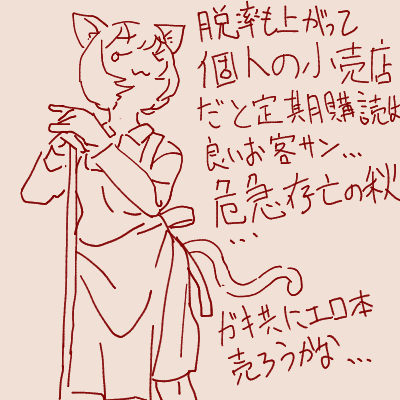 脱率も上がって
個人の小売店
だと定期購読は
良いお客サン...
危急存亡の秋
...
ガキ共にエロ本
売ろうかな...